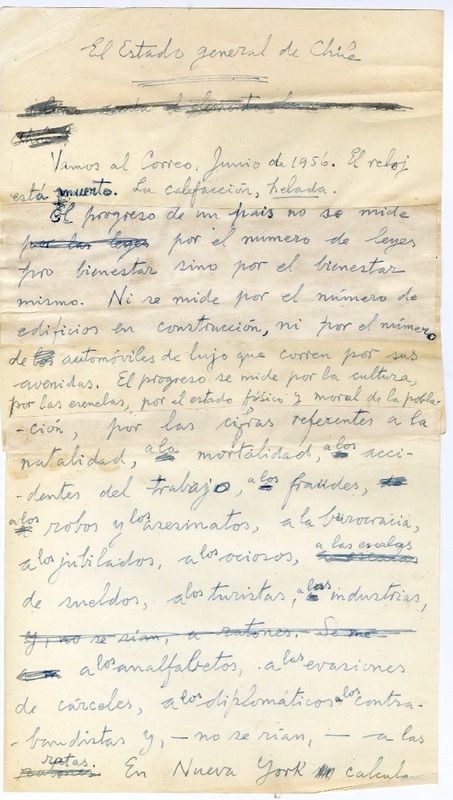 El Estado general de Chile
Vamos al Correo. Junio de 1956. El reloj
está muerto. La calefacción, helada.
El progreso de un país no se mide
por las leyes por el numero de leyes
pro bienestar sino por el bienestar
mismo. Ni se mide por el número de
edificios en construcción, ni por el número
de automóviles de lujo que corren por sus
avenidas. El progreso se mide por la cultura,
por las escuelas, por el estado físico y moral de la pobla-
-ción, por las cifras referentes a la
natalidad, a la mortalidad, a los acci-
-dentes del trabajo, a los fraudes,
a los robos y los asesinatos, a la burocracia,
a los jubilados, a los ociosos, a las escalas
de sueldos, a los turistas, a las industrias,
y, no se rían, a ratones. Se me
a los analfabetos, a las evasiones
de cárceles, a los diplomáticos a los contra-
-bandistas y, — no se rían, — a las
ratas.
ratones. En Nueva York calcula